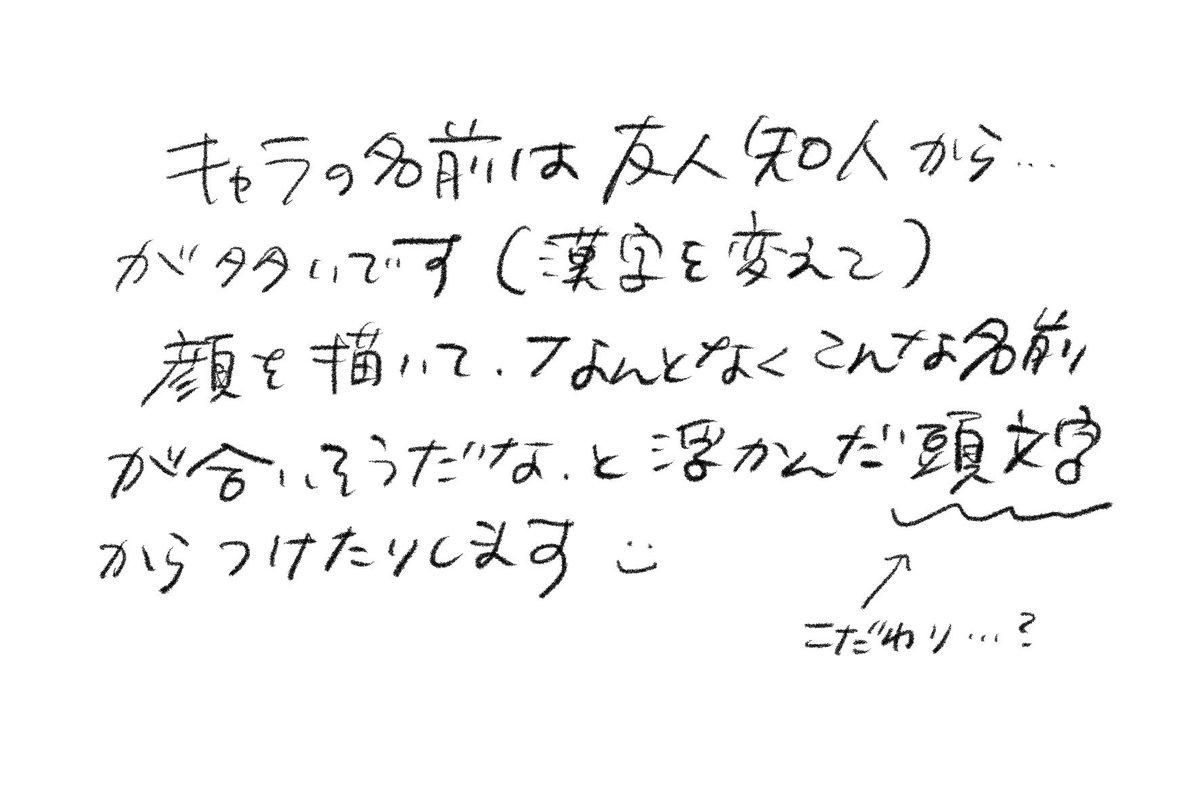 キャラの名前は友人知人から…
が多いです(漢字を変えて)
顔を描いて、なんとなくこんな名前
が合いそうだな、と浮かんだ頭文字
からつけたりします
こだわり…?